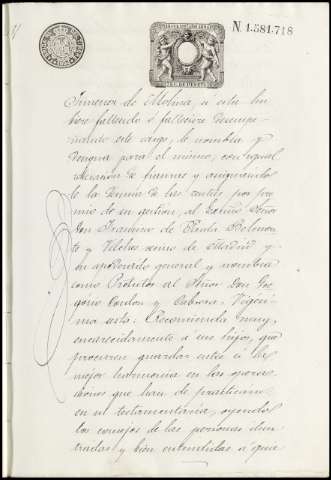 N. 1.581.718
Jimenez de Molina, si este hu
biere fallecido ó falleciere desempe
ñando este cargo, le nombra y
designa para el mismo, con igual
relevacion de fianzas y asignandole
la decima de las rentas por pre
mio de su gestion, al Exmo Señor
Don Francisco de Paula Belmon
te y Vilches vecino de Madrid y
su apoderado general y nombra
como Protutor al Señor Don Gre
gorio y Cabrera. Vigesi
ma sesta: Recomienda muy
encarecidamente á sus hijos, que
procuren guardar entre si la
mejor harmonia en las opera
ciones que han de practicarse
en su testamentaria, oyendo
los consejos de las personas ilus
tradas y bien entendidas á quie